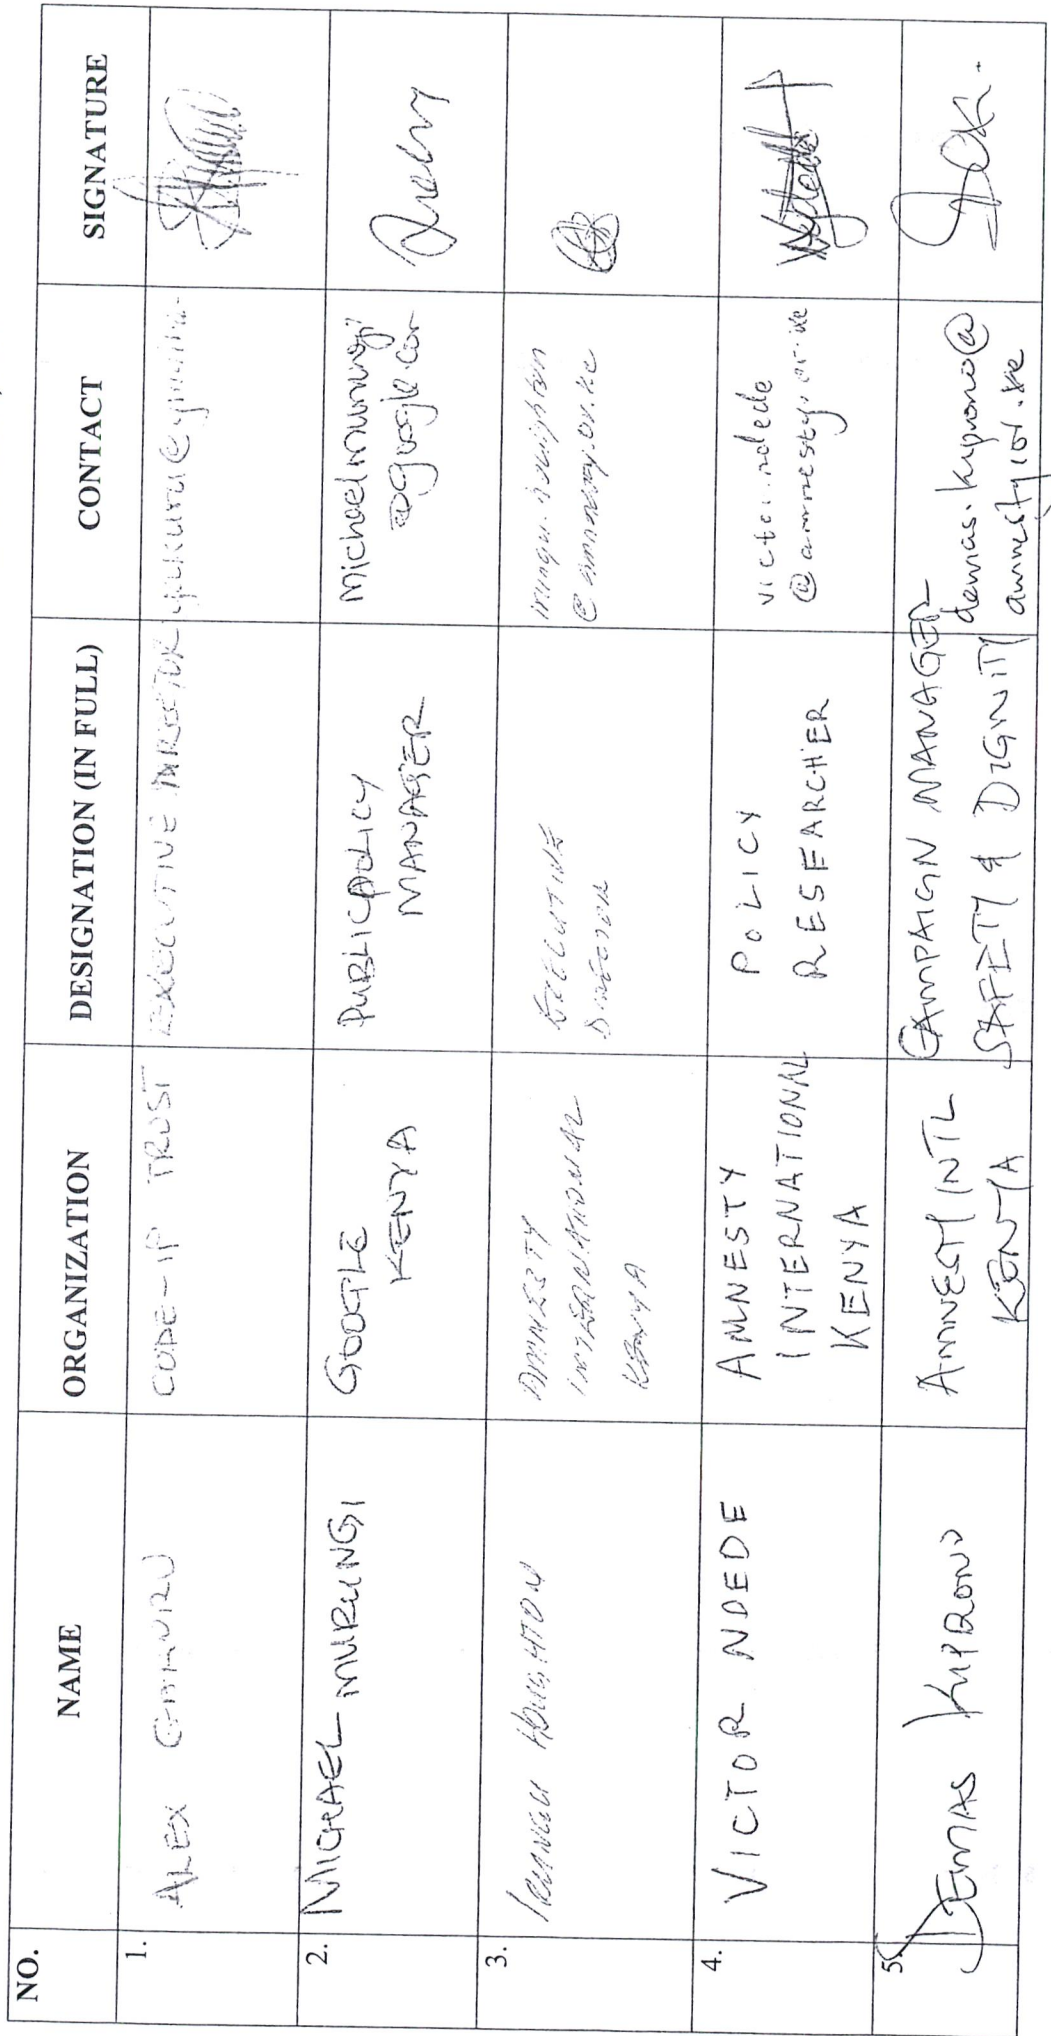 NO. NAME ORGANIZATION DESIGNATION (IN FULL) CONTACT SIGNATURE
1. ALEX GAKURU CODE-IP TRUST EXECUTIVE DIRECTOR
2. MICHAEL MURUNGI GOOGLE KENYA PUBLIC POLICY MANAGER michaelmurungi @google.com
3. IRUNGU HOUGHTON AMNESTY INTERNATIONAL KENYA EXECUTIVE DIRECTOR irungu.houghton @amnesty.or.ke
4. VICTOR NDEDE AMNESTY INTERNATIONAL KENYA POLICY RESEARCHER victor.ndede @amnesty.or.ke
5. DEMAS KIPRONO AMNESTY INTL KENYA CAMPAIGN MANAGER- SAFETY & DIGNITY demas.kiprono@ amnesty.or.ke